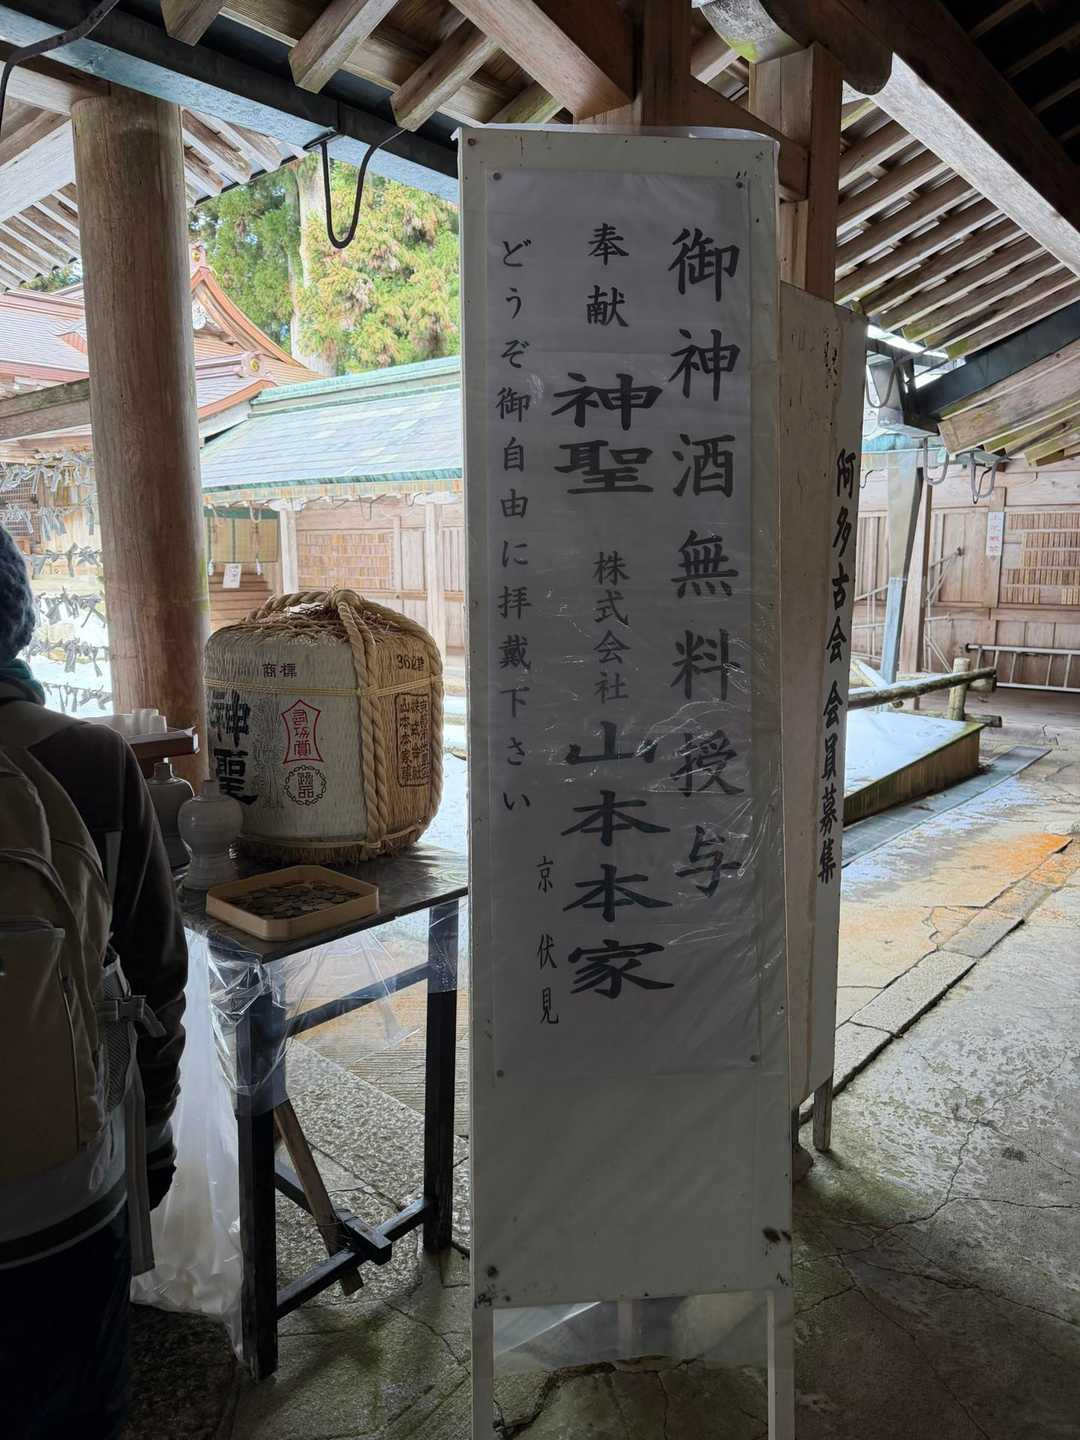 御神酒無料授与
奉献 神聖 株式会社 山本本家
どうぞ御自由に拝戴下さい
京 伏見
阿多古会会員募集
商標
神聖